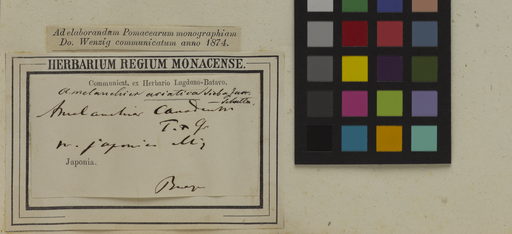 Ad elaborandam Pomacearum monographiam
Do. Wenzig communicatum anno 1874.
HERBARIUM REGIUM MONACENSE.
Communicat. ex Herbario Lugduno-Batavo.
Amelanchier asiatica
Amelanchier Canadensis
T. & Gr
japonica Miq
Japonia.